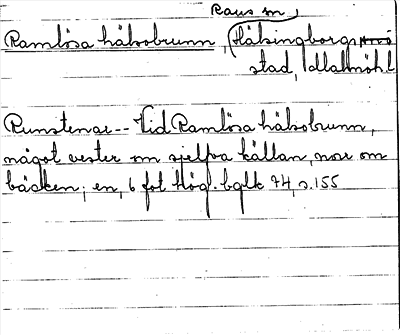 Raus sn,
Ramlösa hälsobrunn, Hälsingborgs
stad, Mallmöhl
Runstenar -- Vid Ramlösa hälsobrunn,
något vester om sjelfva källan, norr om
bäcken; en, 6 fot hög. bglk 74, s. 155